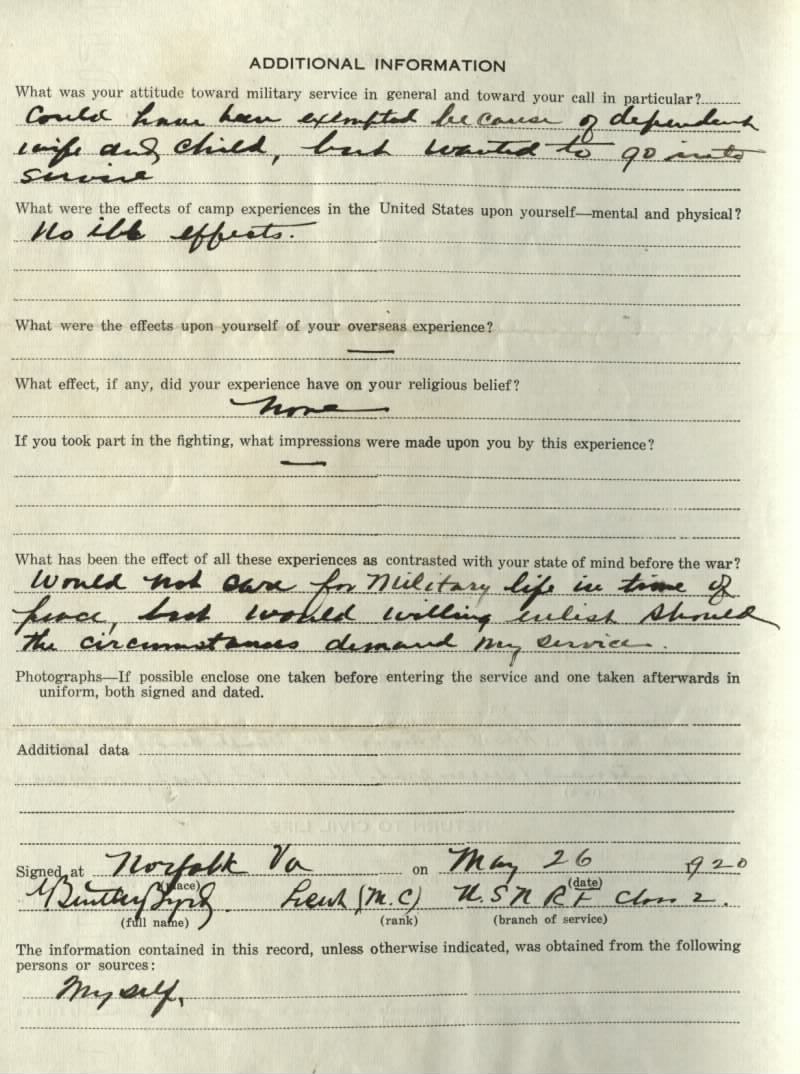 ADDITIONAL INFORMATION
What was your attitude toward military service in general and toward your call in particular?
Could have been exempted because of dependent
wife and child, but wanted to go into
service
What were the effects of camp experiences in the United States upon yourself—mental and physical?
No ill effects.
What were the effects upon yourself of your overseas experience?
—
What effect, if any, did your experience have on your religious belief?
None
If you took part in the fighting, what impressions were made upon you by this experience?
—
What has been the effect of all these experiences as contrasted with your state of mind before the war?
Would not care for Military life in time of
peace, but would willing enlist should
the circumstances demand my service.
Photographs—If possible enclose one taken before entering the service and one taken afterwards in
uniform, both signed and dated.
Additional data
RETURN TO CIVIL LIFE
Signed at Norfolk Va on May 26 1920
(place) (date)
Byrd. Lieut (M.C) U.S.N.R.F Class 2.
(full name) (rank) (branch of service)
The information contained in this record, unless otherwise indicated, was obtained from the following
persons or sources:
Myself,